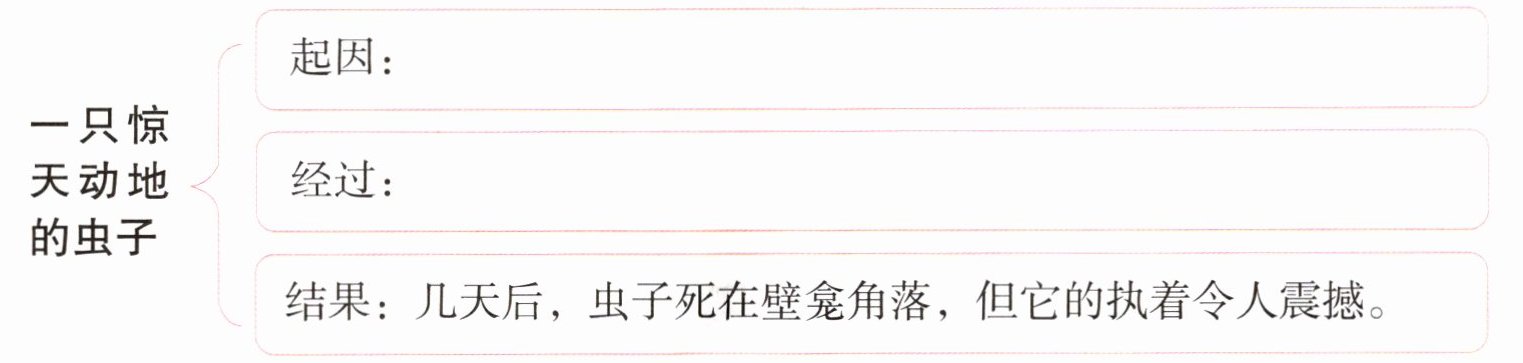 一只惊
天动地
的虫子
起因：
经过：
结果：几天后，虫子死在壁龛角落，但它的执着令人震撼。